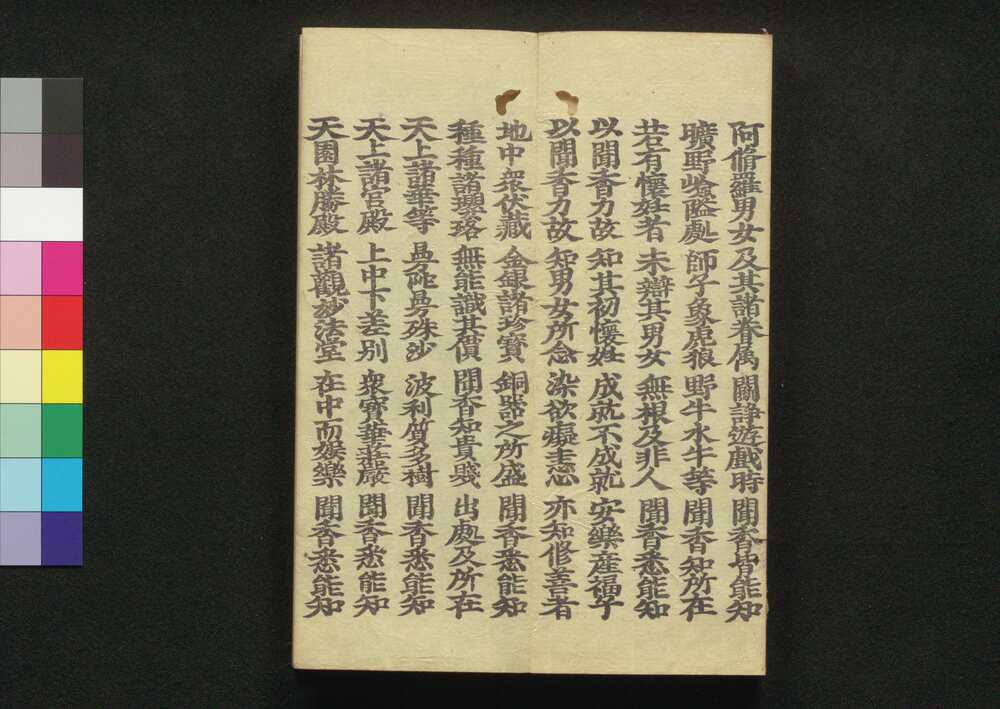 阿脩羅男女 及其諸眷属 鬪諍遊戲時 聞香皆能知
曠野嶮隘處 師子象虎狼 野牛水牛等 聞香知所在
若有懷姙者 未辯其男女 無根及非人 聞香悉能知
以聞香力故 知其初懷姙 成就不成就 安樂産福子
以聞香力故 知男女所念 染欲癡恚心 亦知修善者
地中衆伏藏 金銀諸珍寶 銅器之所盛 聞香悉能知
種種諸瓔珞 無能識其價 聞香知貴賤 出處及所在
天上諸華等 曼陀曼殊沙 波利質多樹 聞香悉能知
天上諸宮殿 上中下差別 衆寶華莊嚴 聞香悉能知
天園林勝殿 諸觀妙法堂 在中而娯樂 聞香悉能知